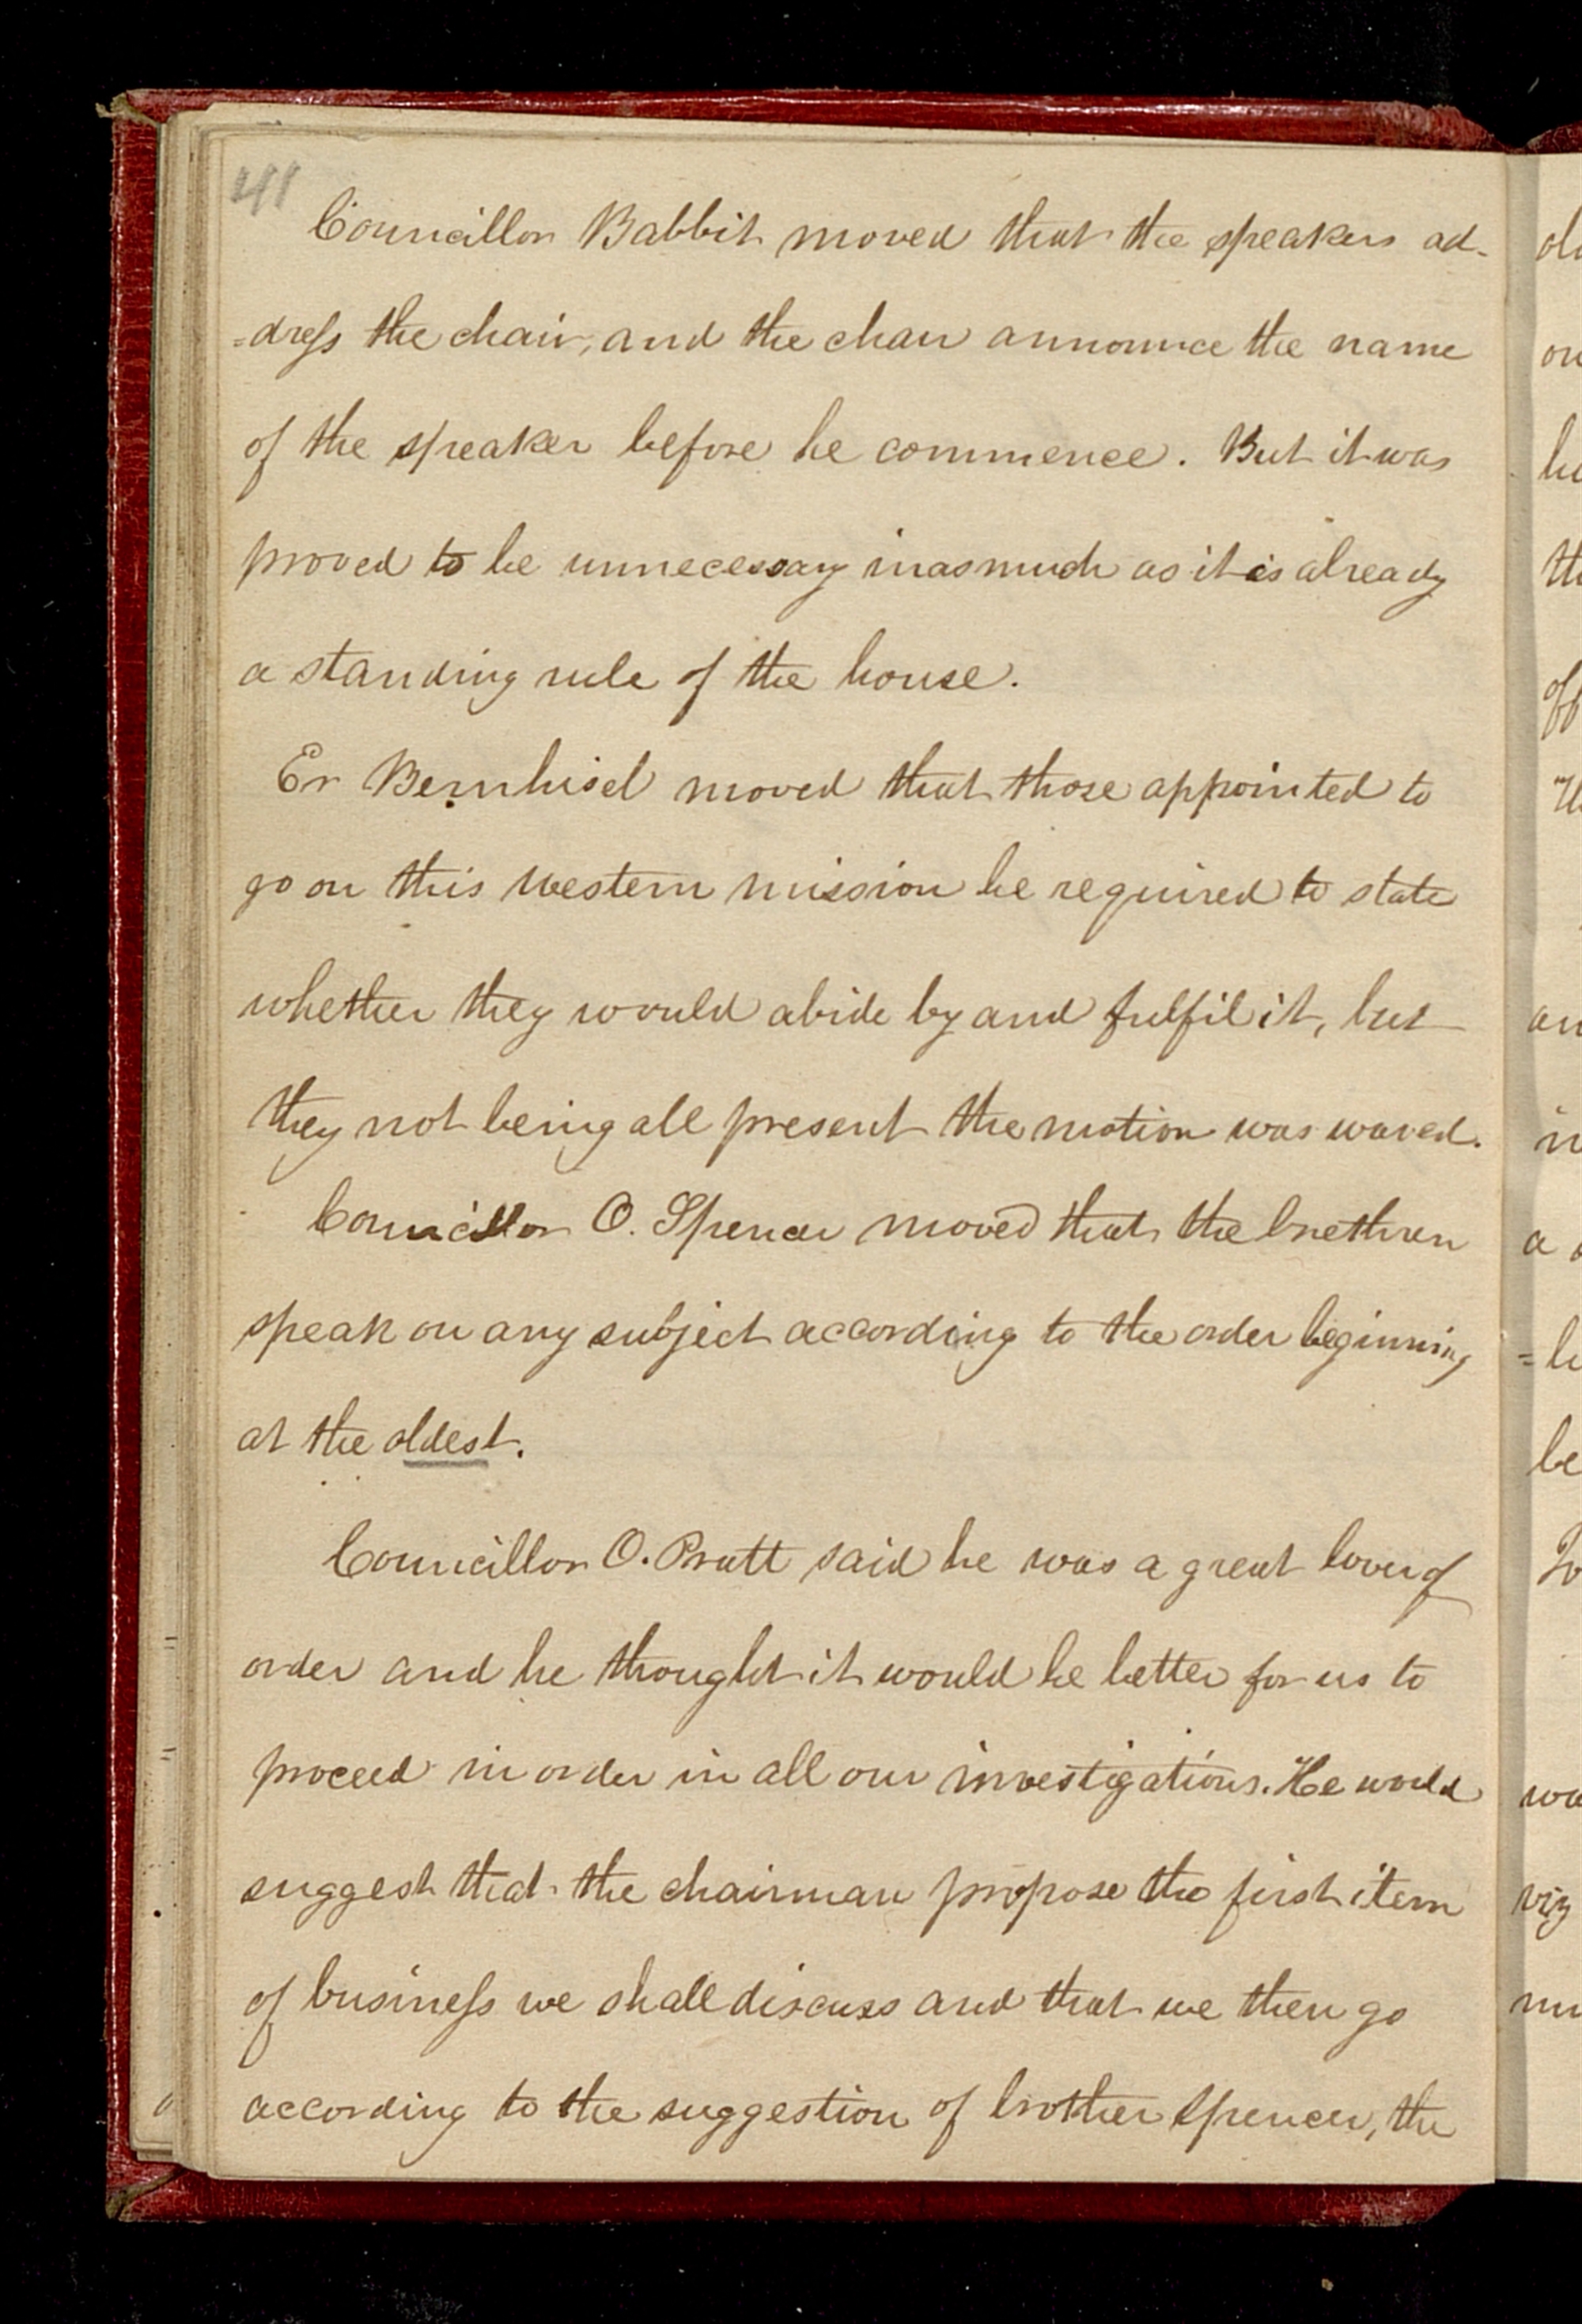 41
Councillor Babbit moved that the speakers ad-
=dress the chair, and the chair announce the name
of the speaker before he commence. But it was
proved to be unnecessary inasmuch as it is already
a standing rule of the house.
Er Bernhisel moved that those appointed to
go on this western mission be required to state
whether they would abide by and fulfil it, but
they not being all present the motion was waved.
Councillor O. Spencer moved that the brethren
speak on any subject according to the order beginning
at the oldest.
Councillor O. Pratt said he was a great lover of
order and he thought it would be better for us to
proceed in order in all our investigations. He would
suggest that the chairman propose the first item
of business we shall discuss and that we then go
according to the suggestion of brother Spencer, the